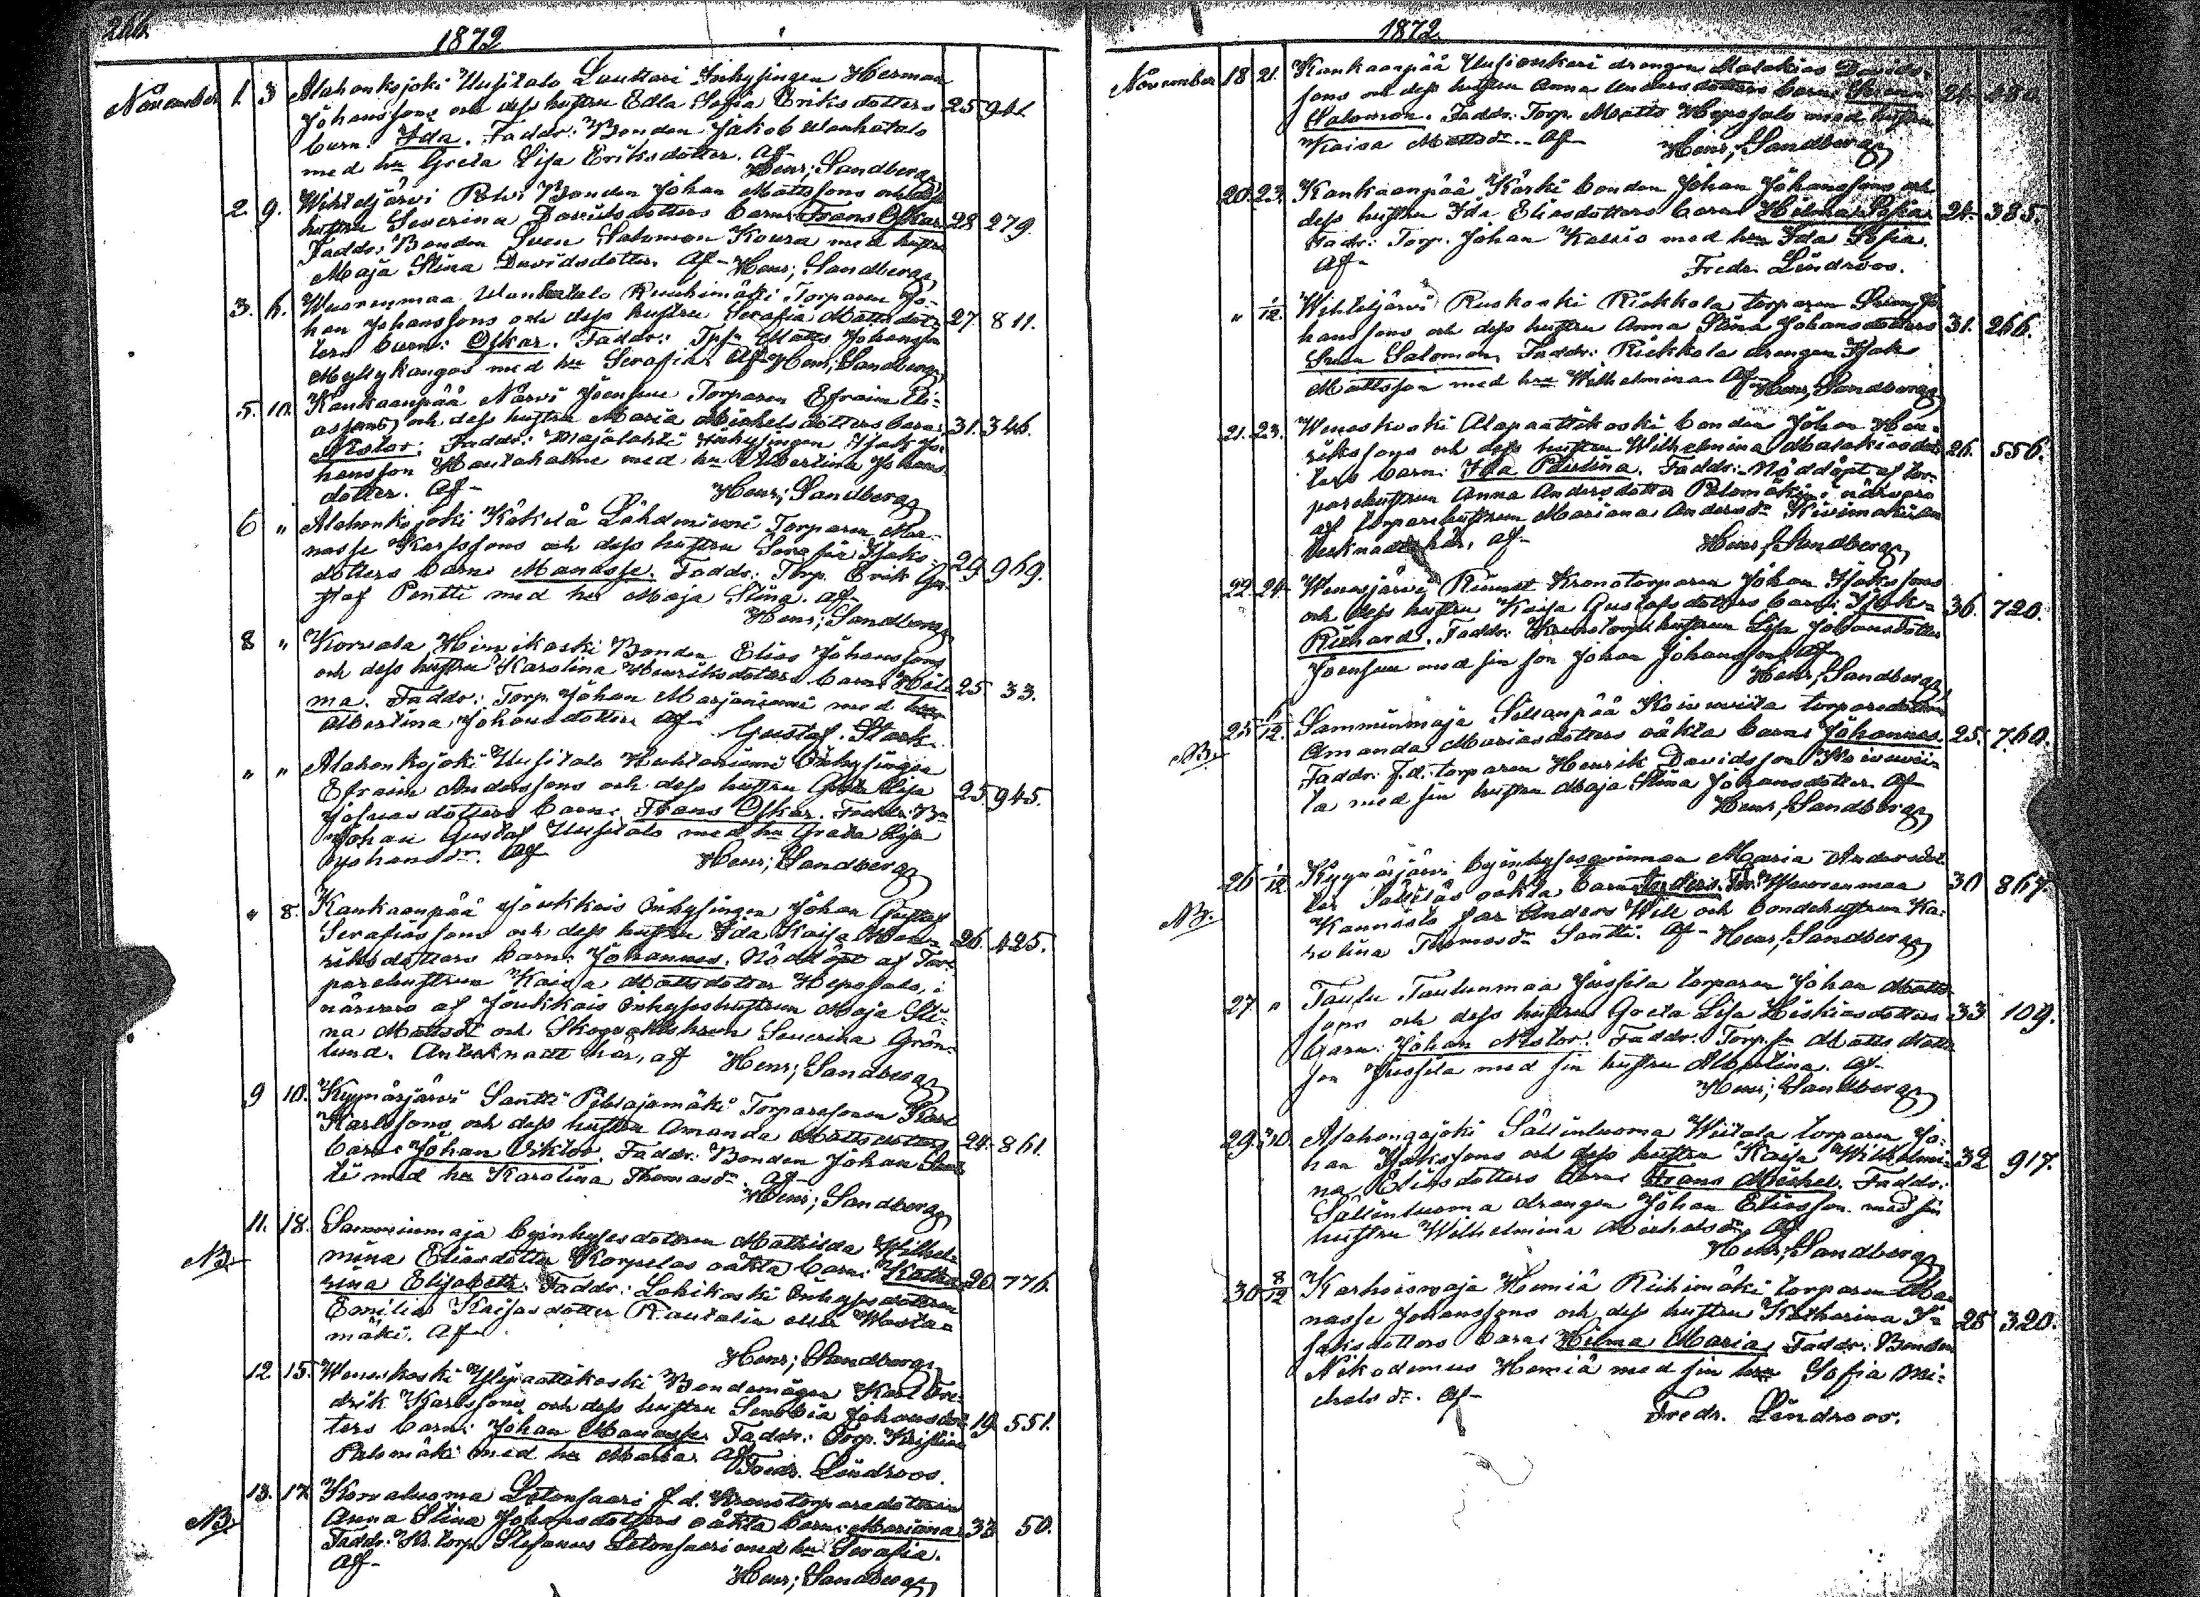 266.
1872
November 1. 3 Alahonkojoki Uusitalo Luuttari Inhysingen Herman
Johanssons och dess hustru Edla Sofia Eriksdotters 25 941
barn: Ida. Faddr: Bonden Jakob
med hu Greta Lisa Eriksdotter. Af
Henr; Sandberg
2. 9. Wihteljärvi Bonden Johan Mattssons och dess
hustru Severina Davidsdotters barn: Frans Oskar 28 279.
Faddr: Bonden Sven Salomon Koura med hustru
Maja Stina Davidsdotter. Af- Henr; Sandberg
3. 6. Wuorenmaa Torparen Jo-
han Johanssons och dess hustru Serafia Mattsdot- 27 811.
ters barn: Oskar. Faddr: Matts Johansson
Myllykangas med hu Serafia. Af Henr; Sandberg
5. 10. Kankaanpää Närvi Joensuu Torparen Efraim Eli-
assons och dess hustru Maria Michelsdotters barn: 31. 346.
Nestor. Faddr: Majalahti Inhysingen Isak Jo-
hansson Hautaholme med hu Albertina Johans
dotter. Af- Henr; Sandberg
6 " Alahonkojoki Kökelä Lähdeniemi Torparen Ma-
nasse Karlssons och dess hustru Serafia Isaks-
dotters barn: Manasse. Faddr: Torp. Erik Gu- 29 969.
staf Pentti med hu Maja Stina. Af-
Henr; Sandberg
8 " Korvala Hirvikoski Bonden Elias Johanssons
och dess hustru Karolina Henriksdotters barn: Hil- 25 33.
ma. Faddr: Torp. Johan Marjaniemi med hu
Albertina Johansdotter. Af- Gustaf. Stark.
" " Alahonkojoki Uusitalo Huhtaniemi Inhysingen
Efraim Anderssons och dess hustru Greta Lisa
Josuasdotters barn: Frans Oskar. Faddr: Bn 25 945.
Johan Gustaf Uusitalo med hu Greta Lisa
Johansdr. Af Henr; Sandberg
" 8. Kankaanpää Joukkois Inhysingen Johan Gustaf
Serafiassons och dess hustru Ida Kaisa Hen- 26. 425.
riksdotters barn: Johannes. Nöddöpt af Tor-
parehustrun Kaisa Mattsdotter Heposalo, i
närvaro af Joukkois Inhyseshustrun Maja Sti-
na Mattsdr och Skogvaktshrun Severina Grön-
lund. Antecknadt här, af Henr; Sandberg
9 10. Kyynärjärvi Santti Torparesonen Karl
Karlssons och dess hustru Amanda Mattsdotters 24. 861.
barn: Johan Viktor. Faddr: Bonden Johan Sant-
ti med hu Karolina Thomasdr. Af-
Henr; Sandberg
11. 18. Samminmaja Byinhysesdottren Mathilda Wilhel-
NB. mina Eliasdotter Korpelas oäkta barn: Katha- 20 776.
rina Elisabeth. Faddr: Lohikoski Inhysesdottren
Emilia Kaisasdotter Rautalin eller Wasta-
mäki. Af
Henr; Sandberg
12 15. Weneskoski Ylipaattikoski Bondemågen Karl Fre-
drik Karlssons och dess hustru Senobia Johansdot- 19 551.
ters barn: Johan Manasse. Faddr: Torp. Kristian
Palomäki med hu Maria. Af
Fredr. Lindroos.
13. 17 Korvaluoma Letonsaari f.d. Kronotorparedottren
NB. Anna Stina Johansdotters oäkta barn: Mariana. 33 50.
Faddr: Kr. torp. Stefanus Letonsaari med hu Serafia.
Af- Henr; Sandberg
1872
November 18 21. Kankaanpää drengen Malakias Davids-
sons och dess hustru Anna Andersdotters barn:
Salomon. Faddr: Torp. Matts Heposalo med hustru
Kaisa Mattsdr. Af Henr; Sandberg
20. 23. Kankaanpää Kärki bonden Johan Johanssons och
dess hustru Ida Eliasdotters barn: Hilma Sofia 24. 385.
Faddr: Torp. Johan med hu Ida Sofia.
Af-
Fredr. Lindroos.
" 1/12. Wihteljärvi Ruskoski Riekkola torparen Sven Jo-
hanssons och dess hustru Anna Stina Johansdotters 31. 266.
Sven Salomon. Faddr: Riekkola drengen Isak
Mattsson med hu Wilhelmina. Af Henr; Sandberg
21. 23. Weneskoski Alapaattikoski bonden Johan Hen-
rikssons och dess hustru Wilhelmina Malakiasdot- 26. 556.
ters barn: Ida Paulina. Faddr: Nöddöpt af tor-
parehustrun Anna Andersdotter Palomäki i närvaro
af torparehustrun Mariana Andersdr Kivimäki. An-
tecknadt här, af- Henr; Sandberg
22. 24 Wenesjärvi Kronotorparen Johan Isakssons
och dess hustru Kaisa Gustafsdotters barn: Isak- 36. 720.
Richard. Faddr: Kronotorp. hustrun Lisa Johansdotter
Joensuu med sin son Johan Johansson. Af
Henr; Sandberg
25 6/12. Samminmaja Sillanpää Koivuvista torparedottren
NB. Amanda Mariasdotters oäkta barn: Johannes. 25. 760.
Faddr: f.d. torparen Henrik Davidsson Koivuvis-
ta med sin hustru Maja Stina Johansdotter. Af
Henr; Sandberg
26 1/12 Kyynärjärvi byinhysesqvinnan Maria Andersdot-
ter oäkta barn: Anders. Fr: Wuorenmaa 30 867.
NB. Kannisto far Anders Will och bondehustrun Ka-
rolina Thomasdr Santti. Af- Henr; Sandberg
27 " Taulu Taulunmaa Jussila torparen Johan Matts-
sons och dess hustru Greta Lisa Hiskiasdotters 33 109.
barn: Johan Nestor. Faddr: Torp.sn Matts Matts-
son Jussila med sin hustru Albertina. Af-
Henr; Sandberg
29. 30. Alahongojoki Sällinluoma Wiitala torparen Jo-
han Isakssons och dess hustru Kaisa Wilhelmi- 32 917.
na Eliasdotters barn: Frans Michel. Faddr:
Sällinluoma drengen Johan Eliasson med sin
hustru Wilhelmina Michelsdr. Af
Henr; Sandberg
30 8/12 Karhoismaja Hemiä Riihimäki torparen Ma-
nasse Johanssons och dess hustru Katharina I- 25 320.
saksdotters barn: Hilma Maria. Faddr: Bonden
Nikodemus Hemiä med sin hru Sofia Mi-
chelsdr. Af-
Fredr. Lindroos.